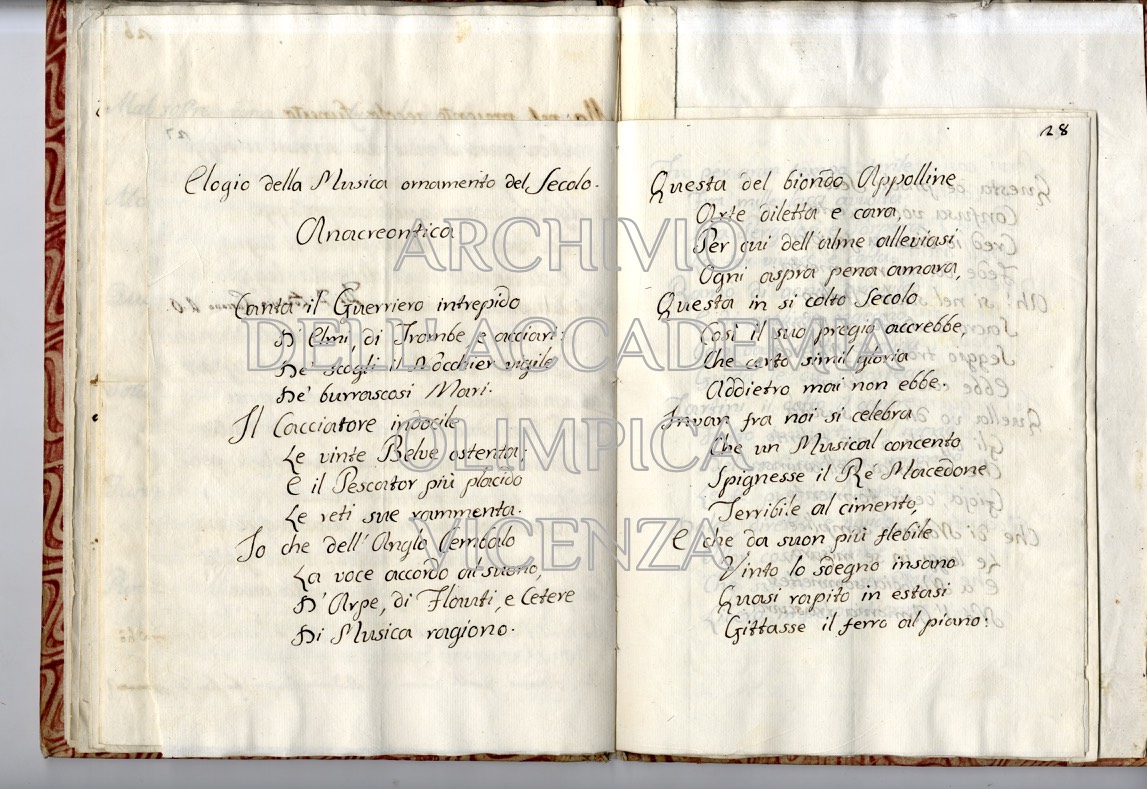 27
Elogio della Musica ornamento del Secolo.
Anacreontica
Canta il Guerriero intrepido
D' Elmi, di Trombe e acciari:
De' scogli il Nocchier vigile
De' burrascosi Mari.
Il Cacciatore indocile
Le vinte Belve ostenta;
E il Pescator più placido
Le reti sue rammenta.
Io che dell'Anglo Cembalo
La voce accordo al suono,
D' Arpe, di Flauti, e Cetere
Di Musica ragiono.
28
Questa del biondo Appolline
Arte diletta e cara,
Per cui dell'alme alleviasi
Ogni aspra pena amara,
Questa in si colto Secolo
Così il suo pregio accrebbe,
Che certo simil gloria
Addietro mai non ebbe.
Invan fra noi si celebra
Che un Musical concento
Spignesse il Re Macedone
Terribile al cimento,
E che da suon più flebile
Vinto lo sdegno insano
Quasi rapito in estasi
Gittasse il ferro al piano:
ARCHIVIO
DELL'ACCADEMIA
OLIMPICA
VICENZA